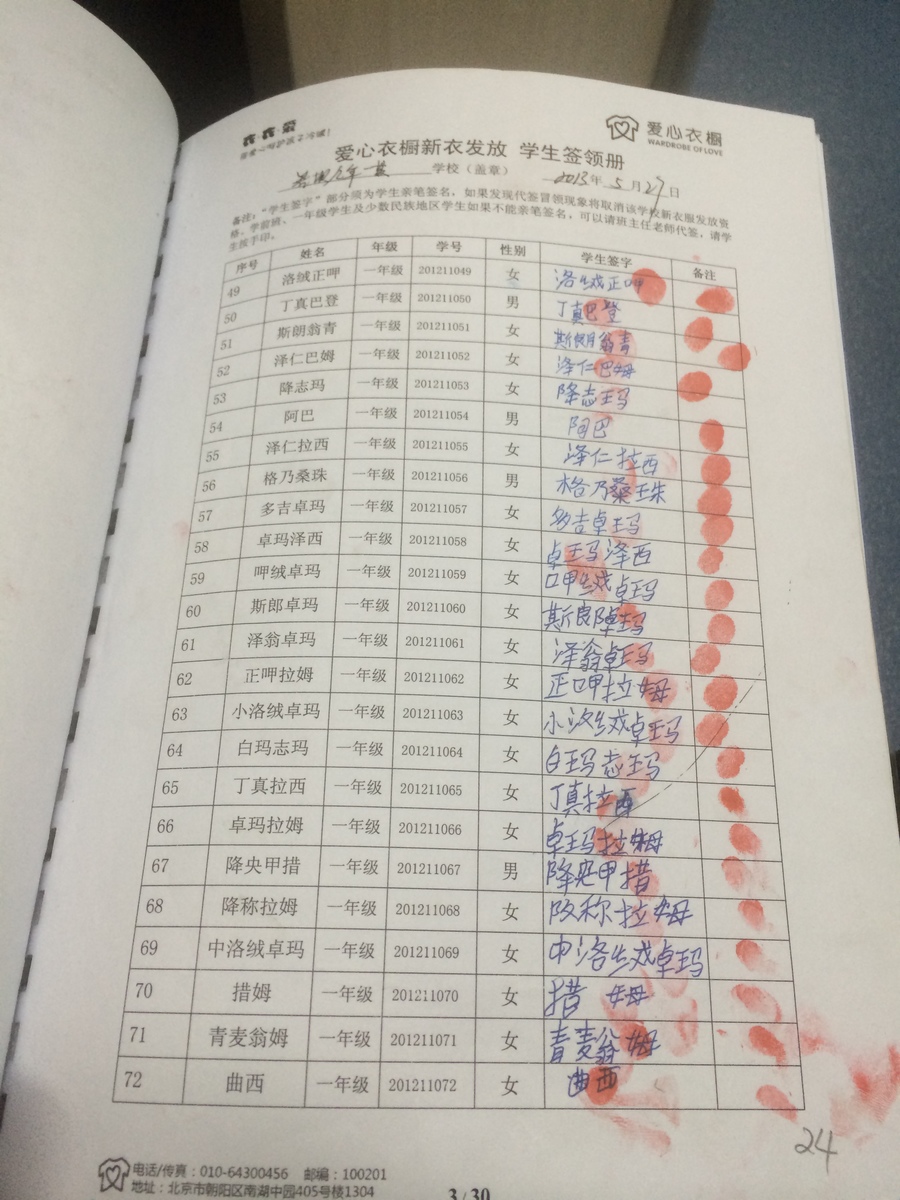 爱心衣橱
WARDROBE OF LOVE
爱心衣橱新衣发放 学生签领册
学校（盖章） 2013年 5 月 27 日
备注："学生签字"部分须为学生亲笔签名，如果发现代签冒领现象将取消该学校新衣服发放资
格。学前班、一年级学生及少数民族地区学生如果不能亲笔签名，可以请班主任老师代签，请学
生按手印。
序号 姓名 年级 学号 性别 学生签字 备注
49 洛绒正呷 一年级 201211049 女 洛绒正呷
50 丁真巴登 一年级 201211050 男 丁真巴登
51 斯朗翁青 一年级 201211051 女 斯朗翁青
52 泽仁巴姆 一年级 201211052 女 泽仁巴姆
53 降志玛 一年级 201211053 女 降志玛
54 阿巴 一年级 201211054 男 阿巴
55 泽仁拉西 一年级 201211055 女 泽仁拉西
56 格乃桑珠 一年级 201211056 男 格乃桑珠
57 多吉卓玛 一年级 201211057 女 多吉卓玛
58 卓玛泽西 一年级 201211058 女 卓玛泽西
59 呷绒卓玛 一年级 201211059 女 呷绒卓玛
60 斯郎卓玛 一年级 201211060 女 斯郎卓玛
61 泽翁卓玛 一年级 201211061 女 泽翁卓玛
62 正呷拉姆 一年级 201211062 女 正呷拉姆
63 小洛绒卓玛 一年级 201211063 女 小洛绒卓玛
64 白玛志玛 一年级 201211064 女 白玛志玛
65 丁真拉西 一年级 201211065 女 丁真拉西
66 卓玛拉姆 一年级 201211066 女 卓玛拉姆
67 降央甲措 一年级 201211067 男 降央甲措
68 降称拉姆 一年级 201211068 女 称拉姆
69 中洛绒卓玛 一年级 201211069 女 中洛绒卓玛
70 措姆 一年级 201211070 女 措姆
71 青麦翁姆 一年级 201211071 女 青麦翁姆
72 曲西 一年级 201211072 女 曲西
24
电话/传真：010-64300456 邮编：100201
地址：北京市朝阳区南湖中园405号楼1304
3 / 30